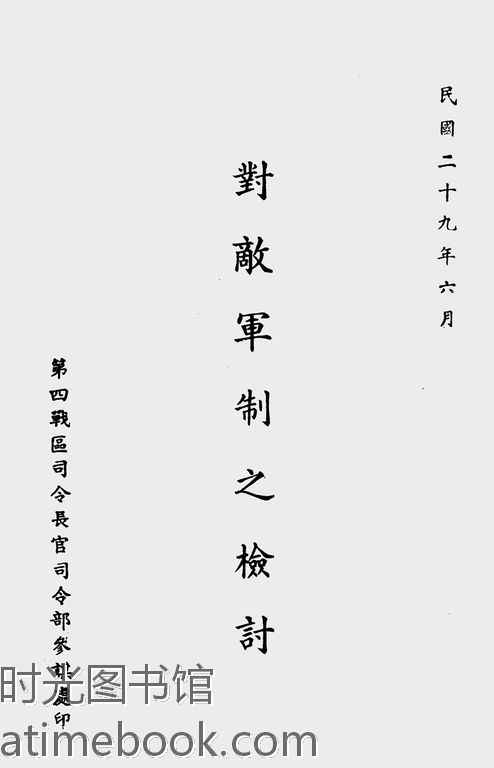 民國二十九年六月
對敵軍制之檢討
第四戰區司令長官司令部參謀處印
时光图书馆
atimebook.com